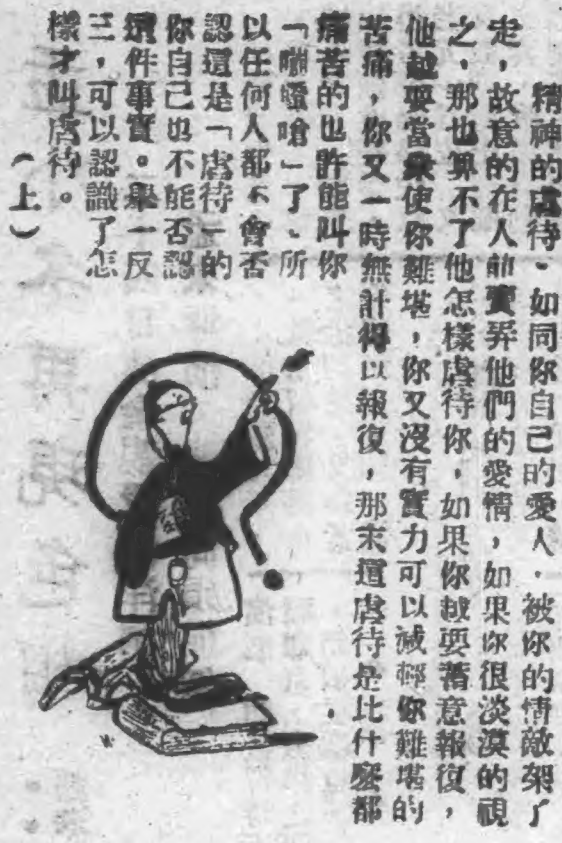 精神的虐待。如同你自己的愛人，被你的情敵架了
走，故意的在人前賣弄他們的愛情，如果你很淡漠的視
之，那也算不了他怎樣虐待你，如果你越要蓄意報復，
他越要當衆使你難堪，你又沒有實力可以減輕你難堪的
苦痛，你又一時無計得以報復，那末這虐待是比什麼都
痛苦的也許能叫你
「嗆」了、所
以任何人都不會否
認這是「虐待」的
你自己也不能否認
這件事實。舉一反
三，可以認識了怎
樣才叫虐待。
（上）